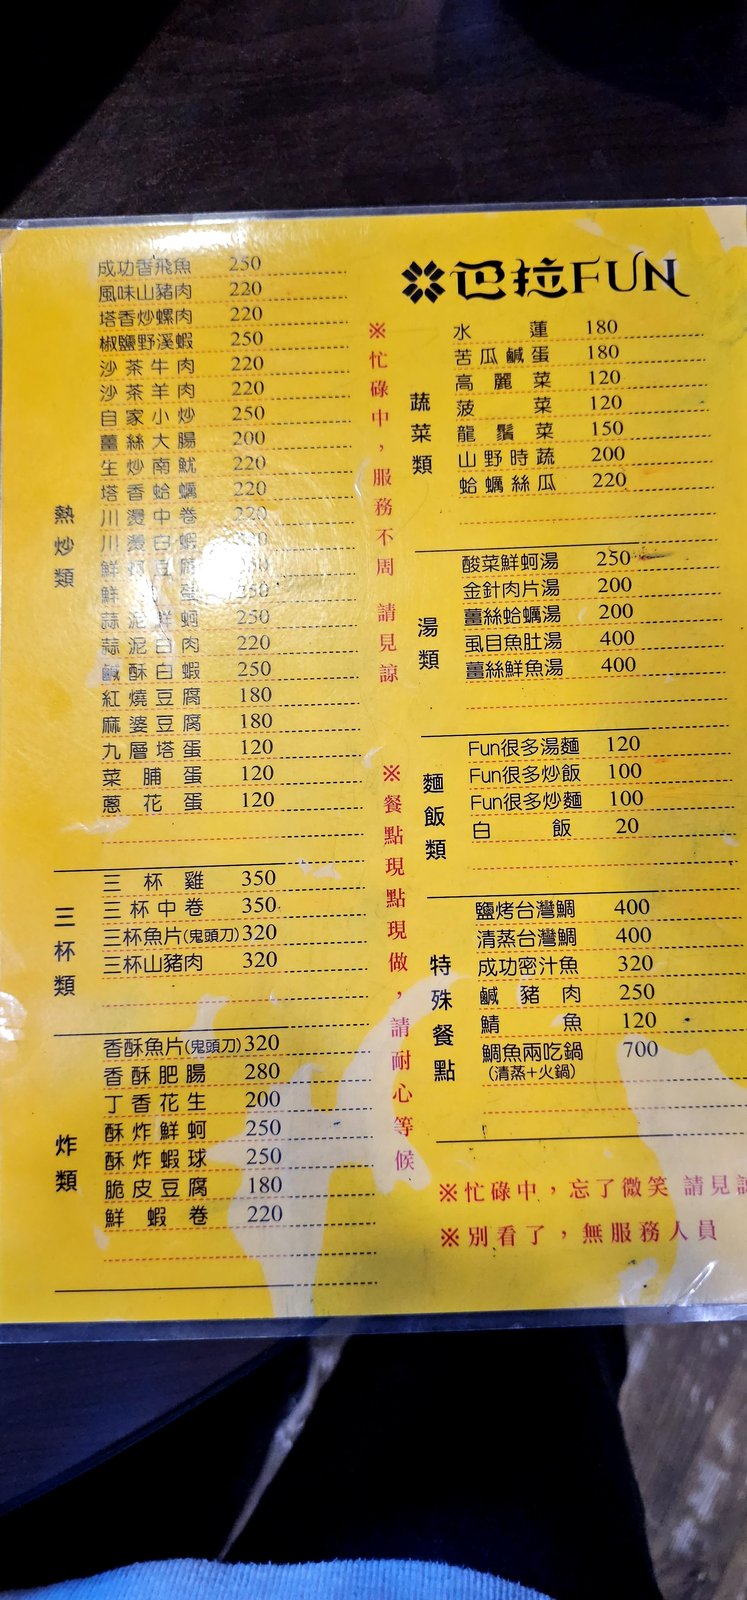 熱炒類
成功香飛魚 250
風味山豬肉 220
塔香炒螺肉 220
椒鹽野溪蝦 250
沙茶牛肉 220
沙茶羊肉 220
自家小炒 250
薑絲大腸 200
生炒南魷 220
塔香蛤蠣 220
川燙中卷 220
川燙白蝦
鮮 豆腐
鮮 蛋 250
蒜泥鮮蚵 250
蒜泥白肉 220
鹹酥白蝦 250
紅燒豆腐 180
麻婆豆腐 180
九層塔蛋 120
菜脯蛋 120
蔥花蛋 120
三杯類
三杯雞 350
三杯中卷 350
三杯魚片(鬼頭刀) 320
三杯山豬肉 320
炸類
香酥魚片(鬼頭刀) 320
香酥肥腸 280
丁香花生 200
酥炸鮮蚵 250
酥炸蝦球 250
脆皮豆腐 180
鮮蝦卷 220
※忙碌中，服務不周 請見諒
※餐點現點現做，請耐心等候
巴拉FUN
蔬菜類
水蓮 180
苦瓜鹹蛋 180
高麗菜 120
菠菜 120
龍鬚菜 150
山野時蔬 200
蛤蠣絲瓜 220
湯類
酸菜鮮蚵湯 250
金針肉片湯 200
薑絲蛤蠣湯 200
虱目魚肚湯 400
薑絲鮮魚湯 400
麵飯類
Fun很多湯麵 120
Fun很多炒飯 100
Fun很多炒麵 100
白飯 20
特殊餐點
鹽烤台灣鯛 400
清蒸台灣鯛 400
成功密汁魚 320
鹹豬肉 250
鯖魚 120
鯛魚兩吃鍋 700
(清蒸+火鍋)
※忙碌中，忘了微笑 請見諒
※別看了，無服務人員